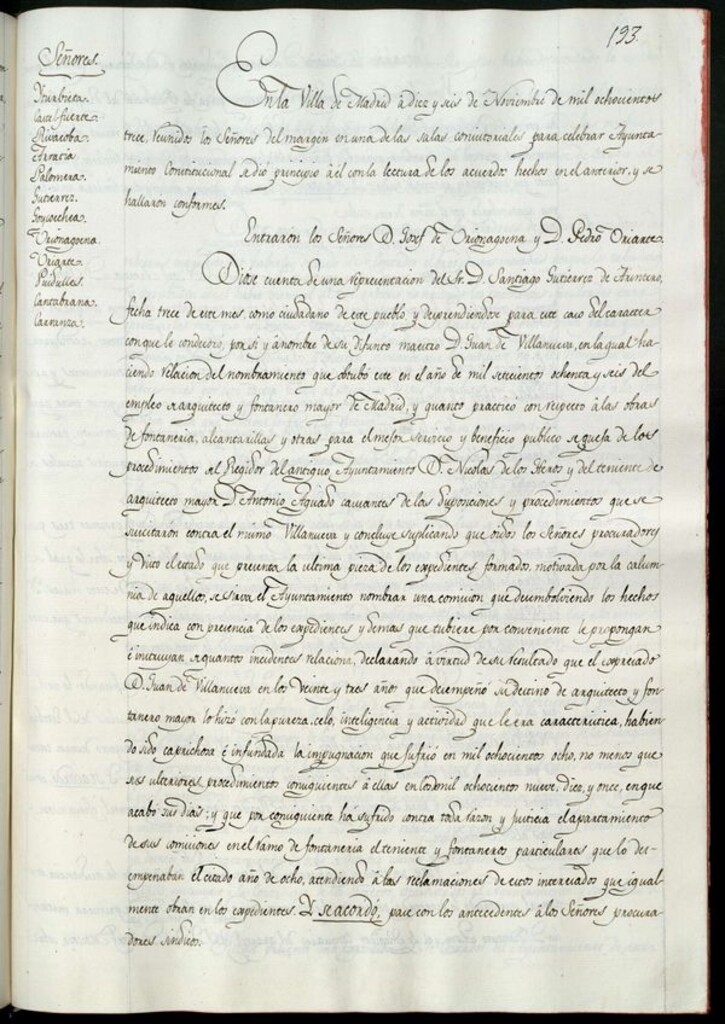 193.
Señores.
Yturbieta.
Castel-fuerte.
Rivacoba.
Arratia
Palomera.
Gutierrez.
Goycoechea.
Urionagoena.
Uriarte.
Puidulles.
Cantabrana.
Carranza.
En la Villa de Madrid a diez y seis de Noviembre de mil ochocientos
trece, reunidos los Señores del margen en una de las salas consistoriales para celebrar Ayunta-
miento Constitucional se dió principio á él con la lectura de los acuerdos hechos en el anterior, y se
hallaron conformes.
Entraron los Señores D. Josef de Urionagoena y D. Pedro Uriarte.
Diose cuenta de una representacion del Sr. D. Santiago Gutierrez de Arintero,
fecha trece de este mes, como ciudadano de este pueblo, y desprendiendose para este caso del caracter
con que le condecoro, por si y á nombre de su difunto maestro D. Juan de Villanueva, en la qual ha-
ciendo relacion del nombramiento que obtubó este en el año de mil setecientos ochenta y seis del
empleo de arquitecto y fontanero mayor de Madrid, y quanto practicó con respecto á las obras
de fontaneria, alcantarillas y otras para el mejor servicio y beneficio publico se queja de los
procedimientos del Regidor del antiguo Ayuntamiento D. Nicolas de los Heros y del teniente de
arquitecto mayor D. Antonio Aguado causantes de las suposiciones y procedimientos que se
suscitaron contra el mismo Villanueva y concluye suplicando que oidos los Señores procuradores
y visto el estado que presenta la ultima pieza de los expedientes formados, motivada por la calum-
nia de aquellos, se sirva el Ayuntamiento nombrar una comision que desembolviendo los hechos
que indica con presencia de los expedientes y demas que tubiere por conveniente le propongan
é instruian de quantos incidentes relaciona, declarando á virtud de su resultado que el expresado
D. Juan de Villanueva en los veinte y tres años que desempeñó su destino de arquitecto y fon-
tanero mayor lo hizó con la pureza, celo, inteligencia y actividad que le era caracteristica, habien-
do sido caprichosa é infundada la impugnacion que sufrió en mil ochocientos ocho, no menos que
sus ulteriores procedimientos consiguientes á ellas en los mil ochocientos nueve, diez, y once, en que
acabó sus dias; y que por consiguiente há sufrido contra toda razon y justicia el apartamiento
de sus comisiones en el ramo de fontaneria el teniente y fontaneros particulares que lo des-
empeñaban el citado año de ocho, atendiendo á las reclamaciones de estos interesados que igual-
mente obran en los expedientes. Y se acordó, pase con los antecedentes á los Señores procura-
dores sindicos.